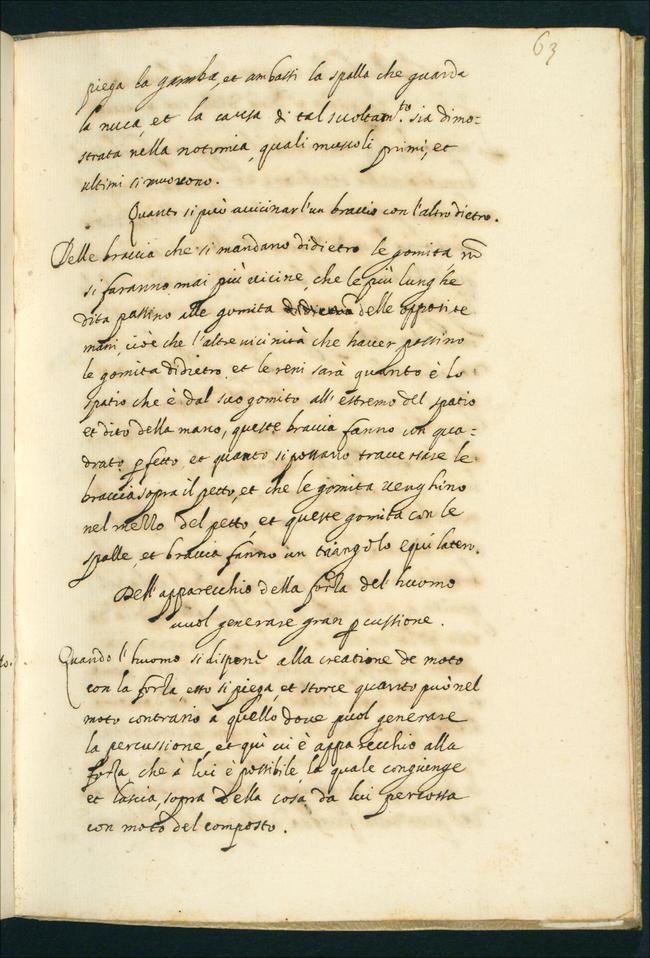 63
piega la gamba, et ambassi la spalla che guarda
la nuca, et la causa di tal suoltam.to sia dimo-
strata nella notomia, quali muscoli primi, et
ultimi si muovono.
Quanto si può avvicinar l'un braccio con l'altro dietro.
Delle braccia che si mandano didietro le gomita nō
si faranno mai più vicine, che le più lunghe
dita passino alle gomita delle opposite
mani, cioè che l'altre vicinità che haver possino
le gomita didietro, et le reni sarà quanto è lo
spatio che è dal suo gomito all' estremo del spatio
et dito della mano, queste braccia fanno un qua-
drato pfetto, et quanto si possano traversare le
braccia sopra il petto, et che le gomita venghino
nel mezzo del petto, et queste gomita con le
spalle, et braccia fanno un triangolo equilatero.
Dell' apparecchio della forza del' huomo
vuol generare gran pcussione.
Quando l' huomo si dispone alla creatione de moto
con la forza, esso si piega, et storce quanto può nel
moto contrario à quello dove vuol generare
la percussione, et quì vi è apparecchio alla
forza, che à lui è possibile, la quale congiunge
et lascia, sopra della cosa da lui percossa
con moto del composto.